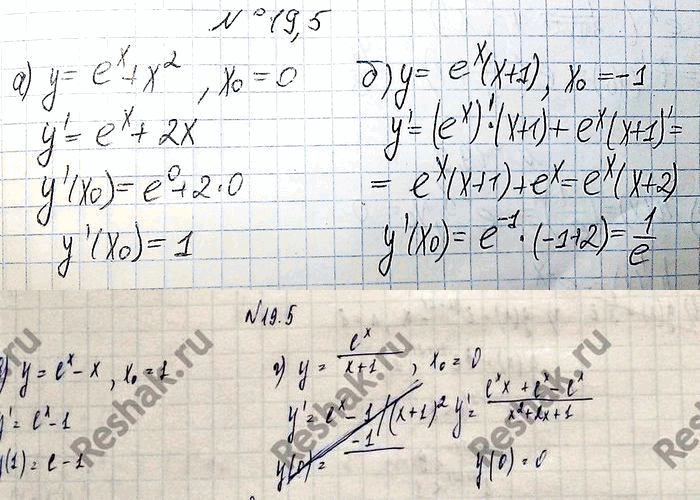 № 19,5
а) y = e^x + x^2, x₀ = 0
y' = e^x + 2x
y'(x₀) = e^0 + 2·0
y'(x₀) = 1
б) y = e^x(x+1), x₀ = -1
y' = (e^x)'·(x+1) + e^x(x+1)' =
= e^x(x+1) + e^x = e^x(x+2)
y'(x₀) = e^-1·(-1+2) = 1/e
№19.5
в) y = e^x - x, x₀ = 1
y' = e^x - 1
y(1) = e - 1
г) y = e^x/(x+1), x₀ = 0
y' = e^x - 1/(x+1)^2 y' = (e^x x + e^x - e^x)/(x^2+2x+1)
y(0) = -1
y(0) = 0
Reshak.ru
Reshak.ru
Reshak.ru